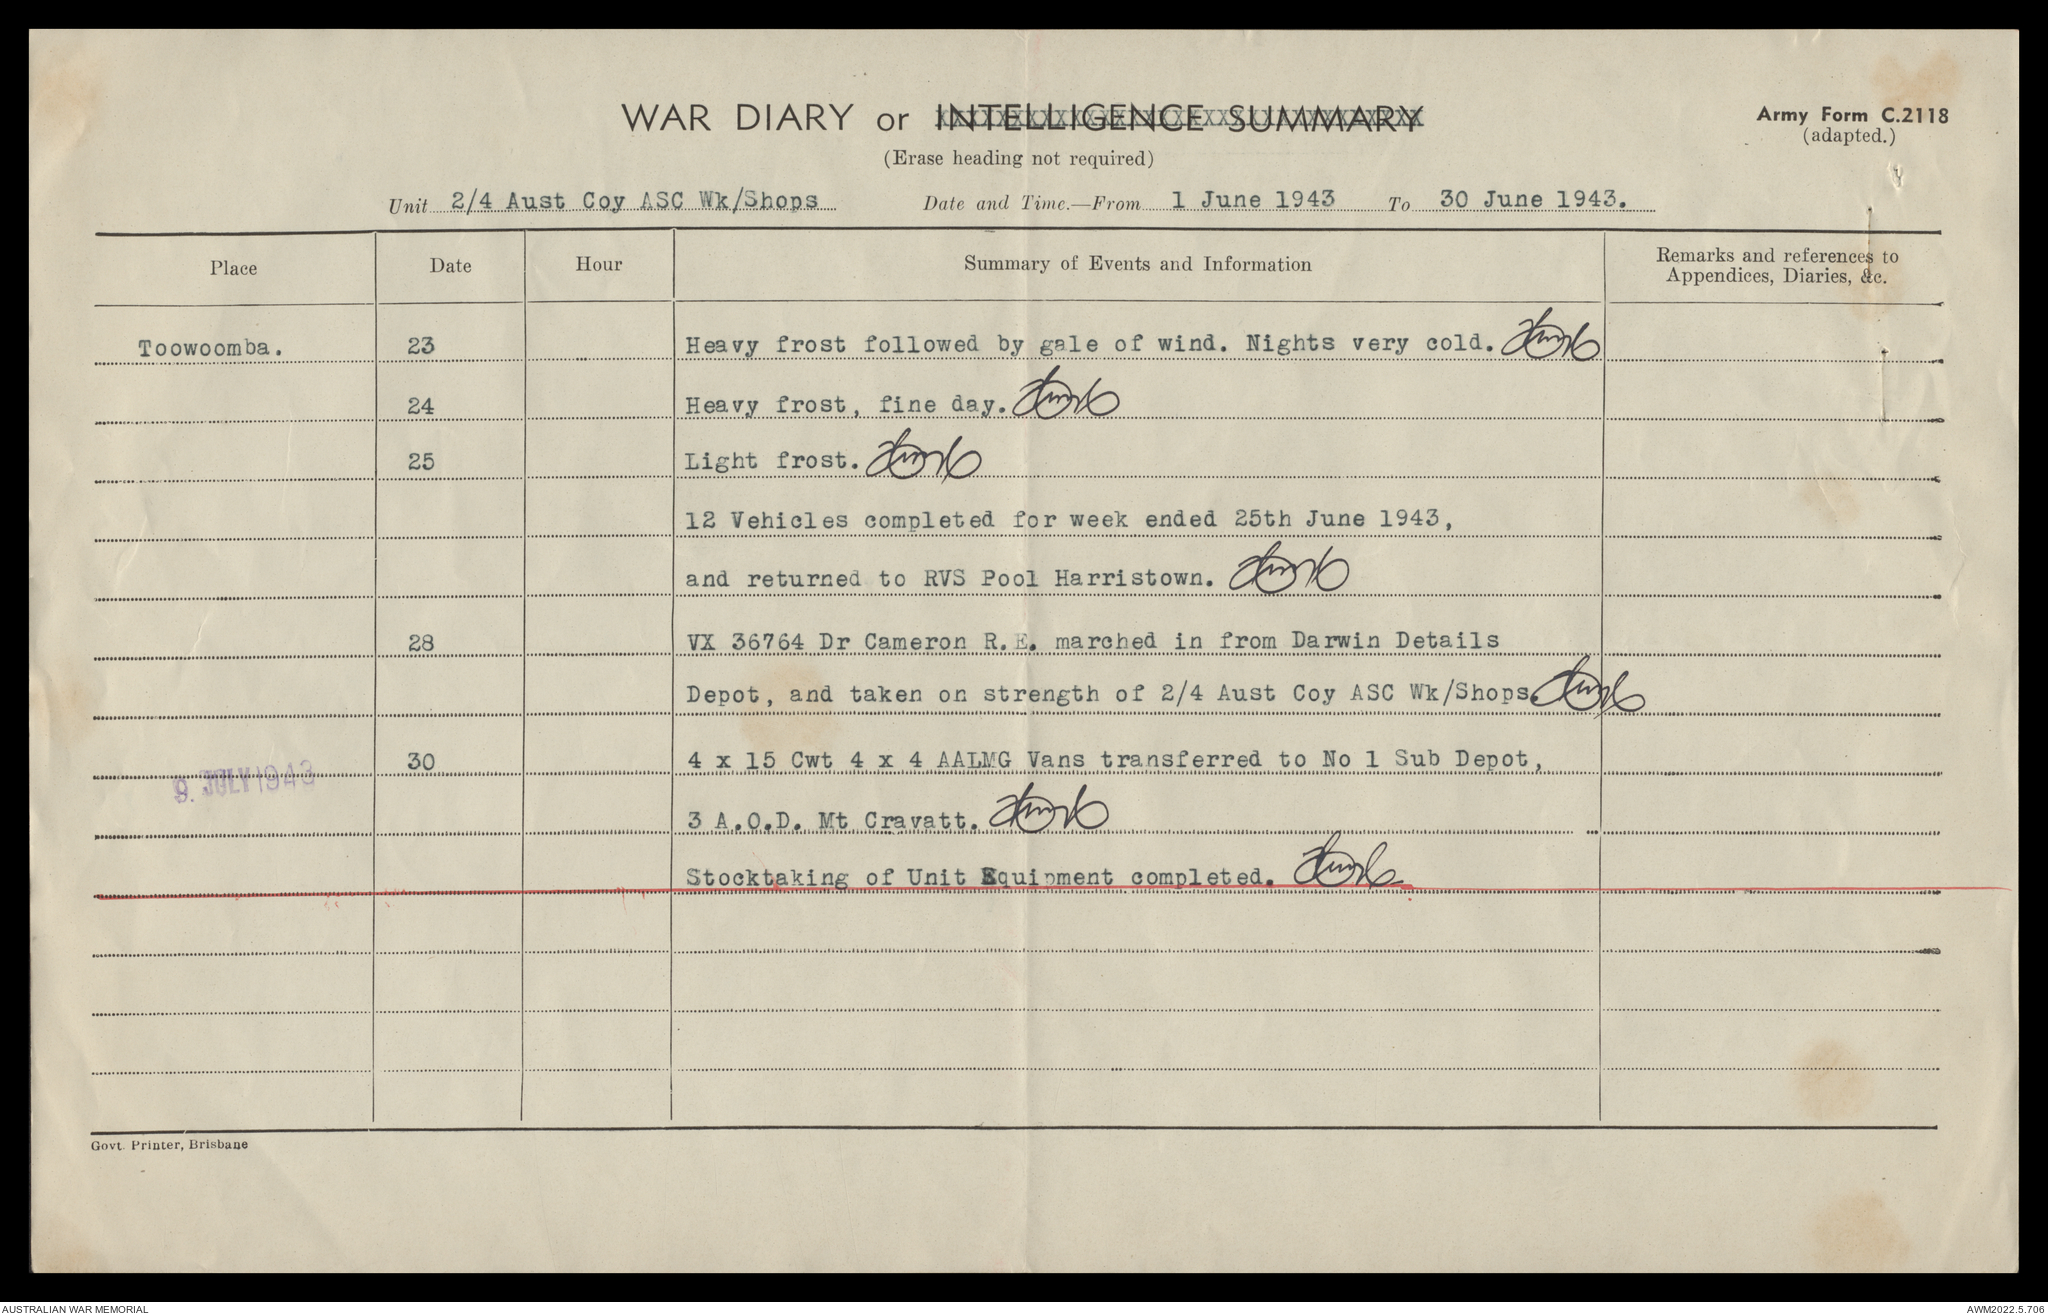 WAR DIARY or INTELLIGENCE SUMMARY
Army Form C.2118
(adapted.)
(Erase heading not required)
Unit 2/4 Aust Coy ASC Wk/Shops Date and Time.—From 1 June 1943 To 30 June 1943.
Place Date Hour Summary of Events and Information Remarks and references to
Appendices, Diaries, &c.
Toowoomba. 23 Heavy frost followed by gale of wind. Nights very cold.
24 Heavy frost, fine day.
25 Light frost.
12 Vehicles completed for week ended 25th June 1943,
and returned to RVS Pool Harristown.
28 VX 36764 Dr Cameron R.E. marched in from Darwin Details
Depot, and taken on strength of 2/4 Aust Coy ASC Wk/Shops.
30 4 x 15 Cwt 4 x 4 AALMG Vans transferred to No 1 Sub Depot,
9. JULY 1943
3 A.O.D. Mt Cravatt.
Stocktaking of Unit Equipment completed.
Govt. Printer, Brisbane
AUSTRALIAN WAR MEMORIAL
AWM2022.5.706